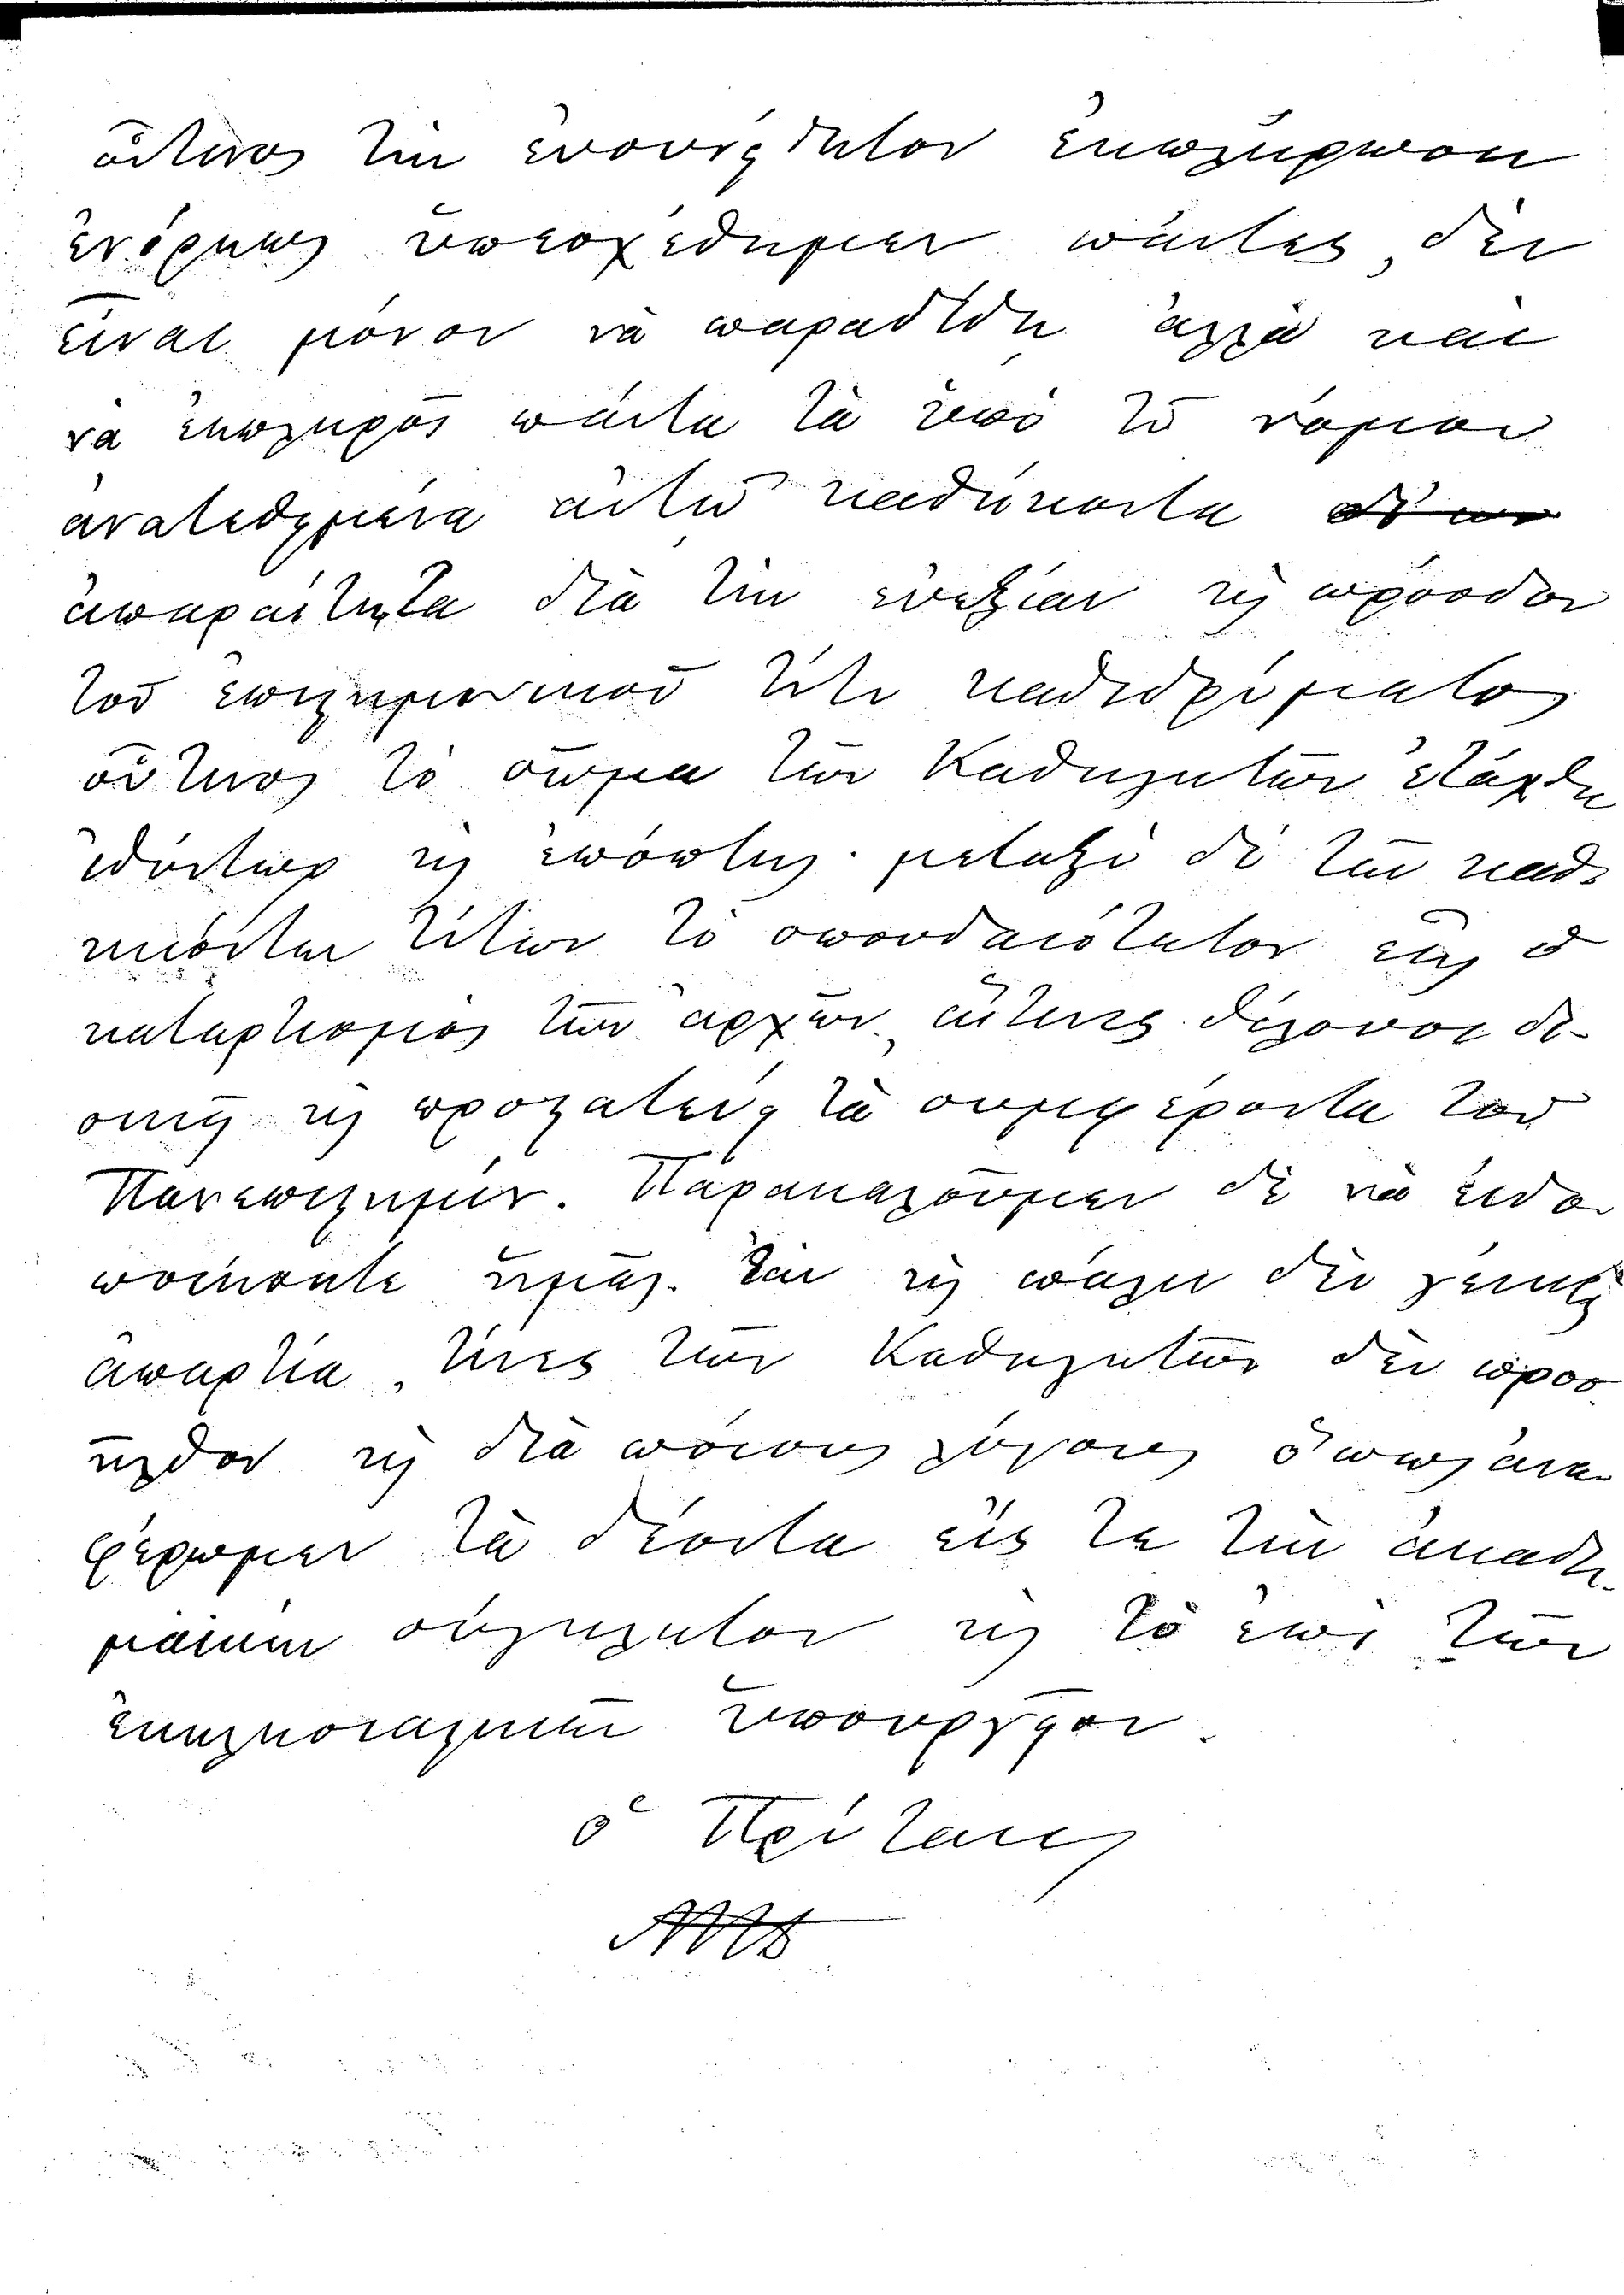 οὗτινος τὴν εὐσυνείδητον ἐκπλήρωσιν
ἐνόρκως ὑπεσχέθημεν πάντες, δὲν
εἶναι μόνον νὰ παραδίδη ἀλλὰ καὶ
νὰ ἐκπληροῖ πάντα τὰ ὑπὸ τοῦ νόμου
ἀνατεθειμένα αὐτῷ καθήκοντα
ἀπαραίτητα διὰ τὴν εὐεξίαν καὶ πρόοδον
τοῦ ἐπιστημονικοῦ τούτου καθιδρύματος
οὗτινος τὸ σῶμα τῶν Καθηγητῶν ἐτάχθη
ἰθύντωρ καὶ ἐπόπτης· μεταξὺ δὲ τῶν καθη
κόντων τούτων τὸ σπουδαιότατον εἶναι ὁ
καταρτισμὸς τῶν ἀρχῶν, αἵτινες θέλουσι δι-
οικεῖ καὶ προστατεύει τὰ συμφέροντα τοῦ
Πανεπιστημίου. Παρακαλοῦμεν δὲ νὰ εἰδο
ποιήσητε ἡμᾶς ἐὰν καὶ πάλιν δὲν γείνῃ
ἀπαρτία, τίνες τῶν Καθηγητῶν δὲν προσ
ῆλθον καὶ διὰ ποίους λόγους ὅπως ἀνα
φέρωμεν τὰ δέοντα εἴς τε τὴν ἀκαδη
μαϊκὴν σύγκλητον καὶ τὸ ἐπὶ τῶν
ἐκκλησιαστικῶν ὑπουργεῖον.
ὁ Πρύτανις